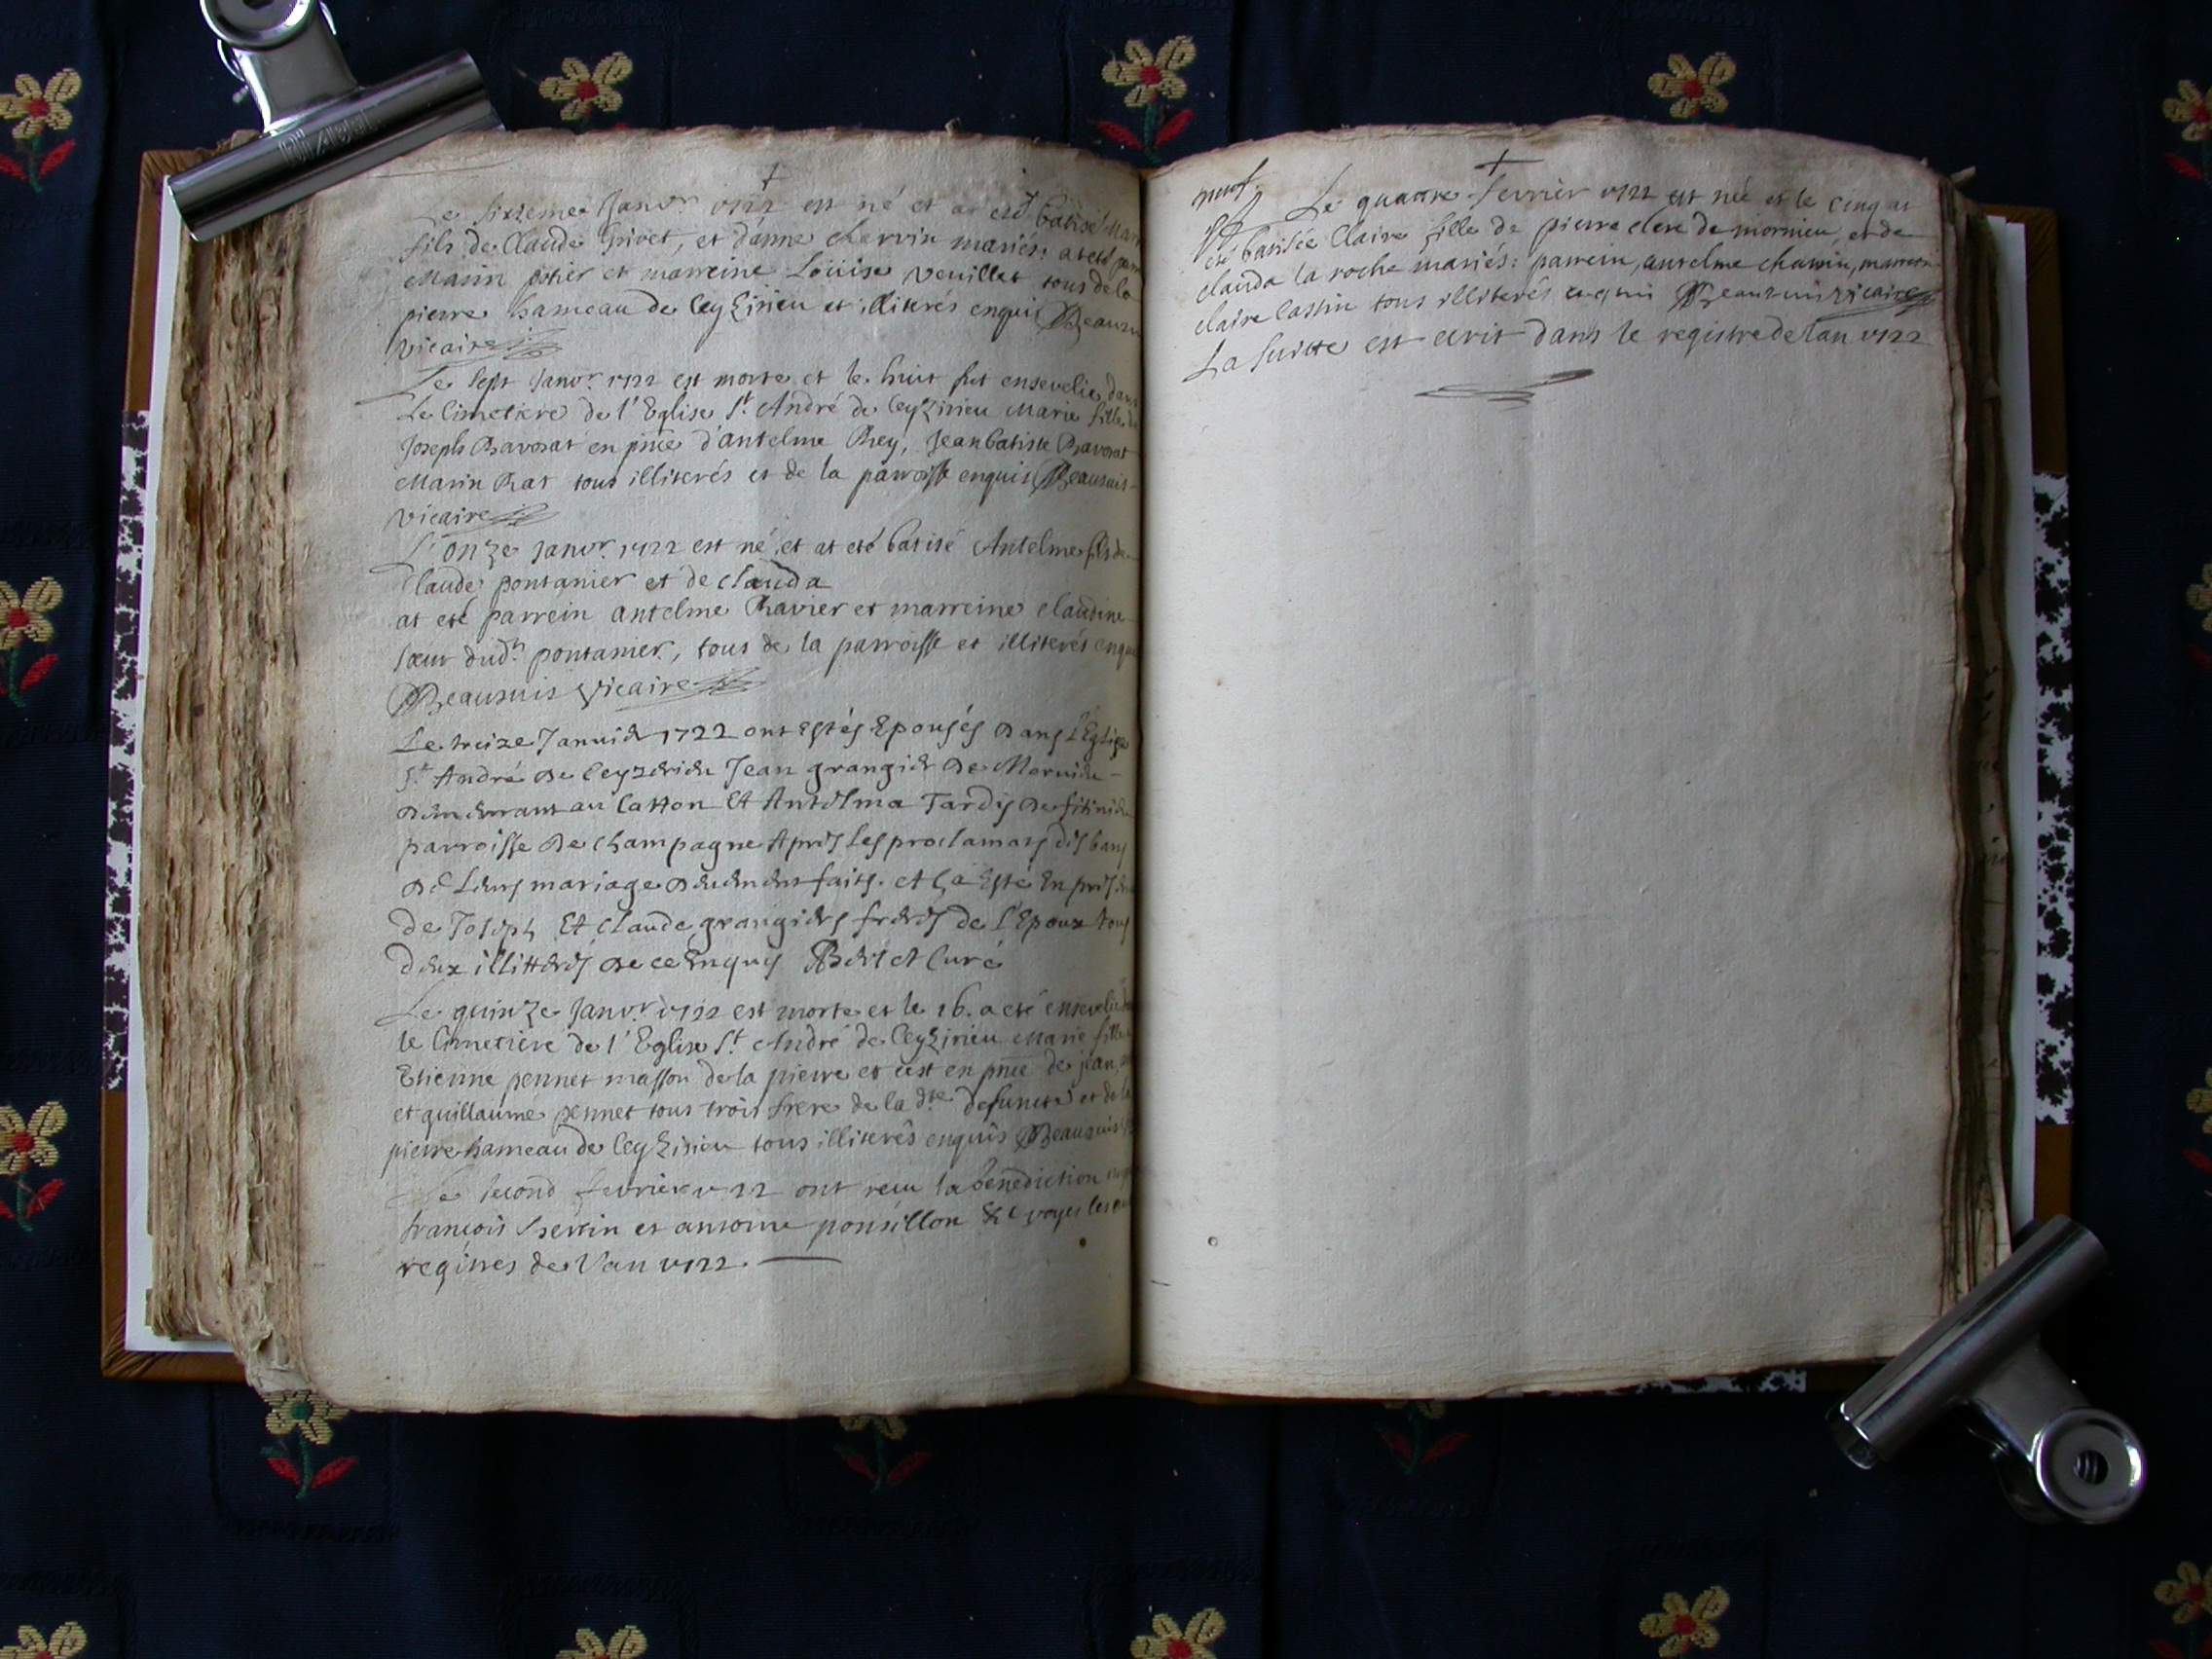 Le sixieme Janvr 1722 est né et at eté batisé
fils de Claude Grivet, et d'anne charvin mariés: at eté
Marin et marreine Loüise veuillet tous de la
pierre hameau de leyzirieu et illiterés enquis
vicaire
Le sept Janvr 1722 est morte et le huit fut ensevelie dans
Le Cimetiere de l'Eglise St André de leyzirieu Marie fille de
Joseph Ravorat en pnce d'antelme Rey, Jean batiste Ravorat
Marin Rat tous illiterés et de la parroisse enquis Beausuis
vicaire
L'onze Janvr 1722 est né et at eté batisé Antelme fils de
Claude pontanier et de clauda
at eté parrein antelme Ravier et marreine claudine
sœur dudt pontanier, tous de la parroisse et illiterés enquis
Beausuis vicaire
Le treize Januier 1722 ont Estés Epousés dans l'Eglise
St André de leyzerieu Jean grangier de Mornieu
demeurant au Catton Et Antelma Tardy de
parroisse de champagne Apres les proclamats des bans
de Leurs mariage deuement faits. et ça Esté En
de Joseph Et Claude grangiers freres de l'Epoux tous
deux illitterés de ce Enquis Curé
Le quinze Janvr 1722 est morte et le 16. a eté ensevelie
le Cimetiere de l'Eglise St André de leyzirieu Marie fille
Etienne pennet masson de la pierre et c'est en pnce de jean,
et guillaume pennet tous trois frere de la dte defuncte et de la
pierre hameau de leyzirieu tous illiterés enquis Beausuis
Le second fevrier 1722 ont reçu la benediction
françois et ponsillon &c voyes les
regitres de l'an 1722.
Le quattre fevrier 1722 est née et le cinq at
eté batisée Claire fille de pierre clerc de mornieu, et de
clauda la roche mariés: parrein, antelme charvin, marrein
claire Cassin tous illiterés enquis Beausuis vicaire
La suitte est ecrit dans le registre de lan 1722